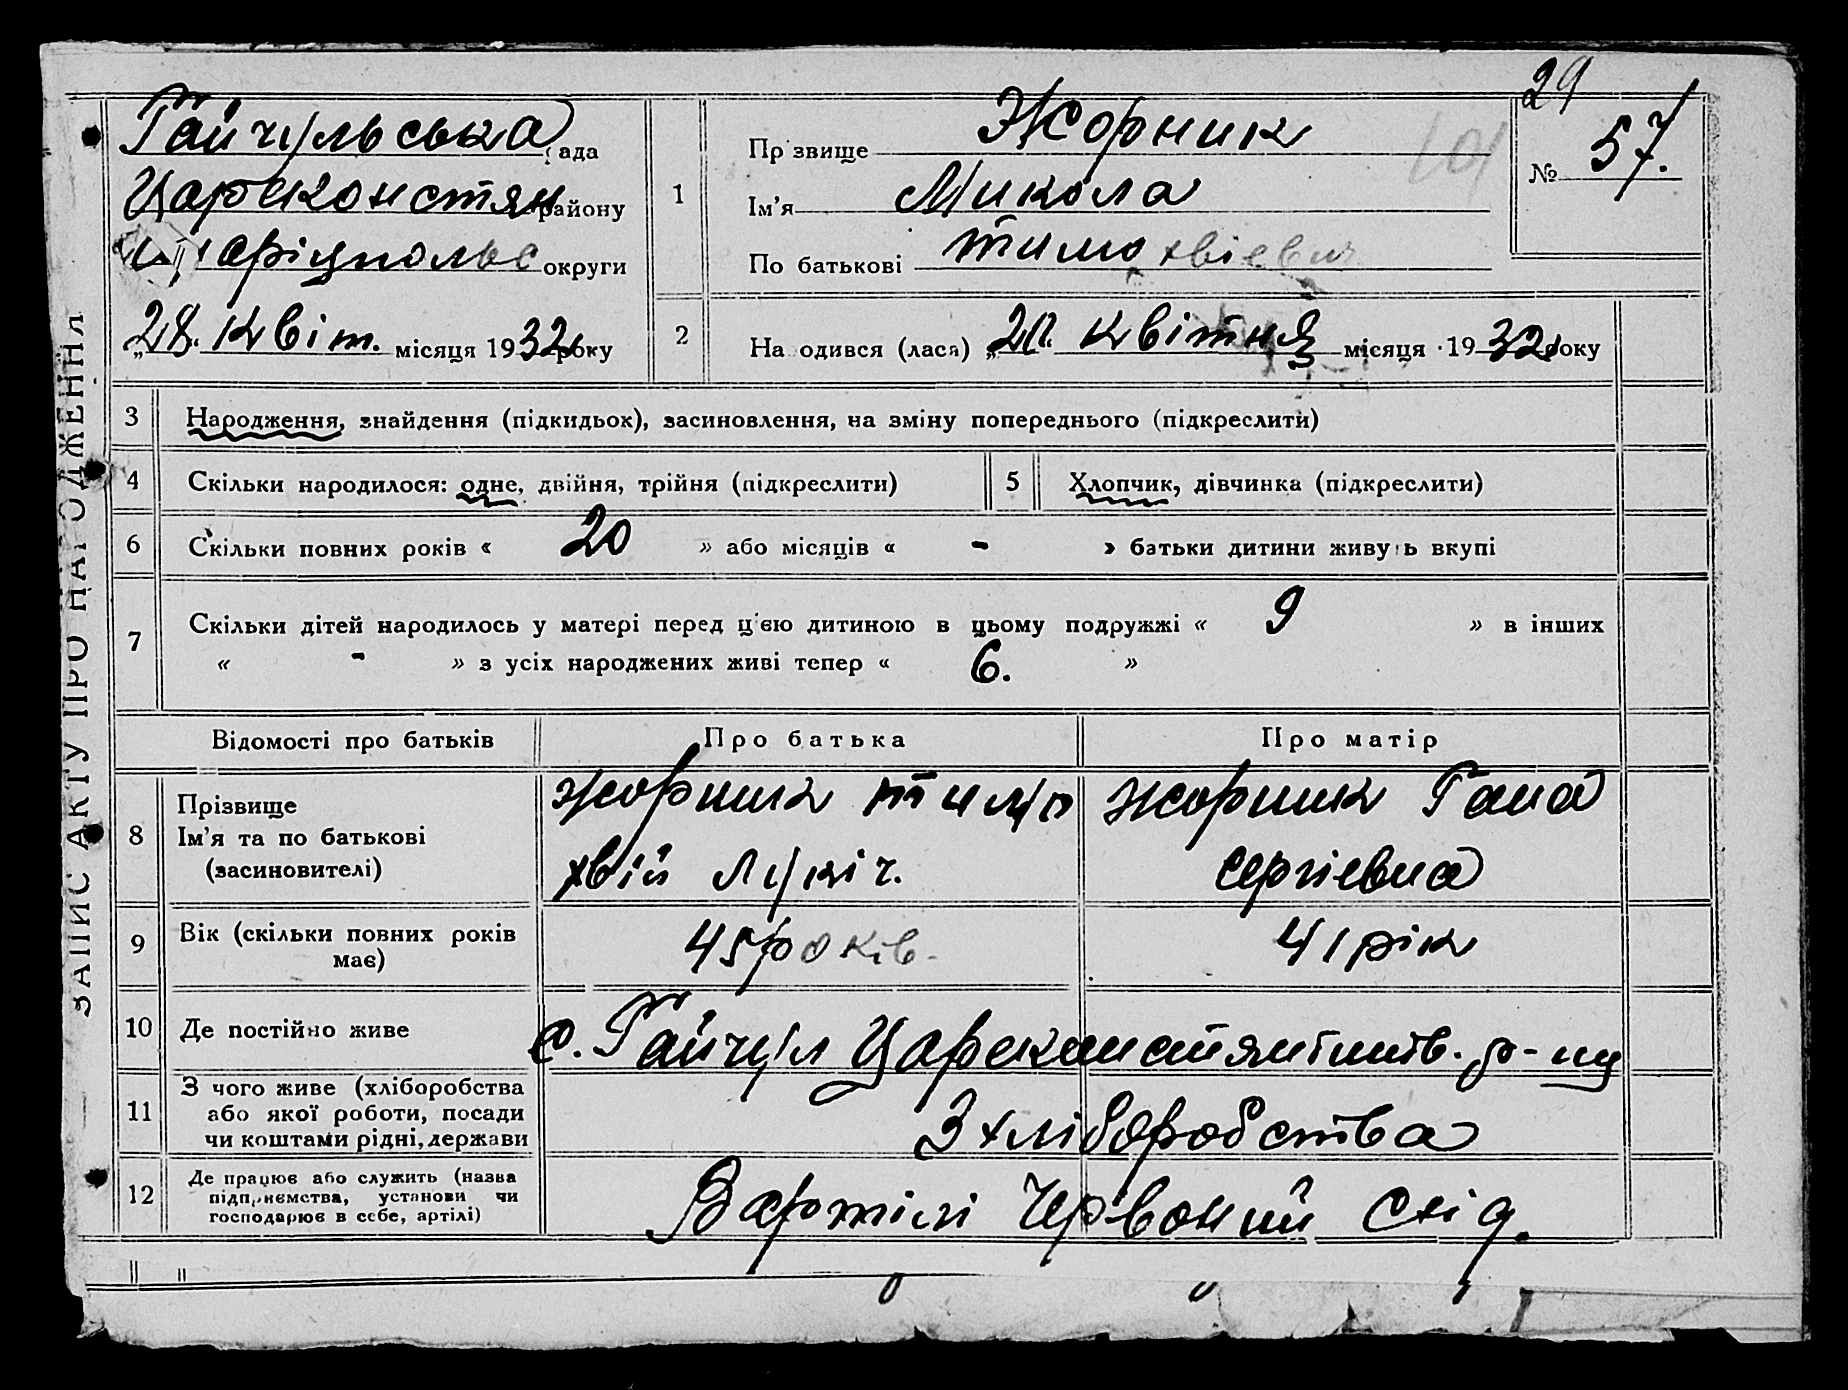 29
Гайчульська рада
Царекон стян району
Маріупольс округи
„28. квіт. місяця 1932 року
1
Прізвище Жорник
Ім'я Микола
По батькові тимохвієвич
№ 57.
101
2
На одився (ласа) „20. квітня місяця 1932 року
ЗАПИС АКТУ ПРО НАРОДЖЕННЯ
3 Народження, знайдення (підкидьок), засиновлення, на зміну попереднього (підкреслити)
4 Скільки народилося: одне, двійня, трійня (підкреслити)
5 Хлопчик, дівчинка (підкреслити)
6 Скільки повних років « 20 » або місяців « - » батьки дитини живуть вкупі
7 Скільки дітей народилось у матері перед цією дитиною в цьому подружжі « 9 » в інших
« - » з усіх народжених живі тепер « 6. »
Відомості про батьків
Про батька
Про матір
8 Прізвище
Ім'я та по батькові
(засиновителі)
жорник тимо
хвій Лукіч.
жорник Гана
сергієвна
9 Вік (скільки повних років
має)
45 років.
41 рік
10 Де постійно живе
с. Гайчул Цареконстянтинів. р-ну
11 З чого живе (хліборобства
або якої роботи, посади
чи коштами рідні, держави
З хліборобства
12 Де працює або служить (назва
підприємства, установи чи
господарює в себе, артілі)
Вартілі Червоний Схід.